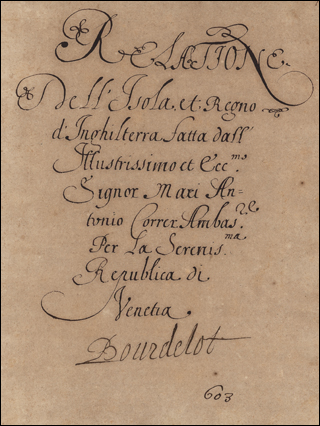 RELATIONE.
Dell'Isola, et Regno
d'Inghilterra fatta dall'
Illustrissimo et Ecc.mo
Signor Marc An=
tonio Correr Ambas.re
Per La Serenis.ma
Republica di
Venetia.
Bourdelot
603